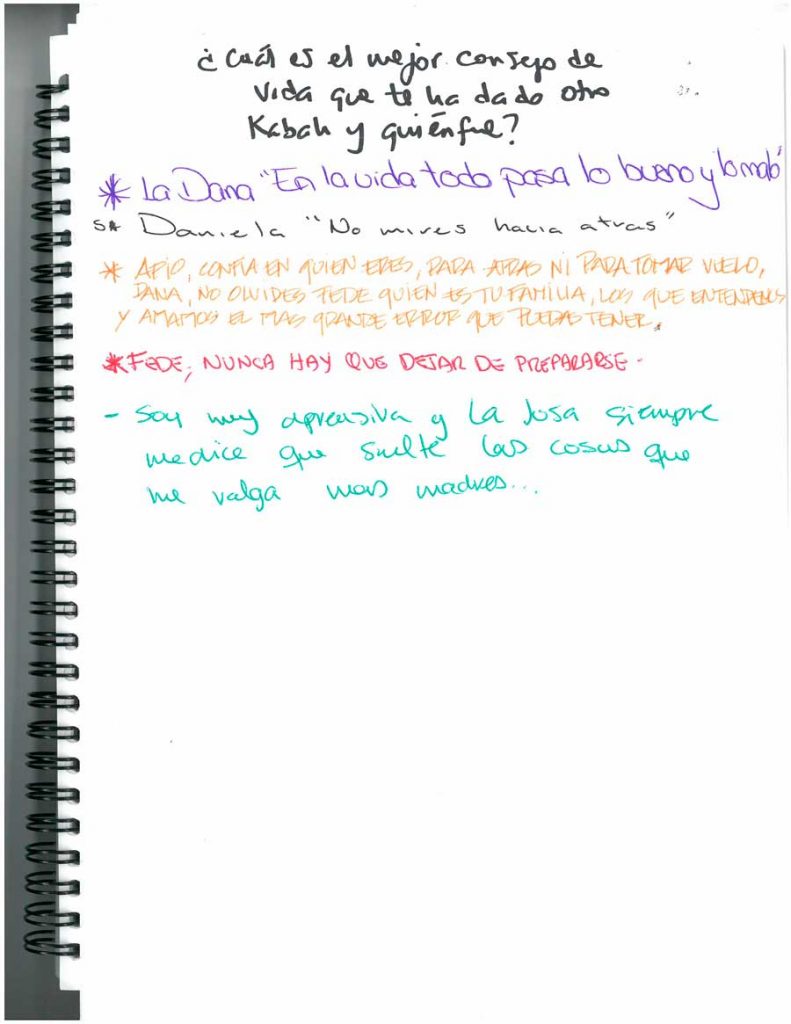 ¿Cuál es el mejor consejo de
vida que te ha dado otro
Kabah y quién fue?
* La Dana "En la vida todo pasa lo bueno y lo malo"
s* Daniela "No mires hacia atras"
* APIO, CONFIA EN QUIEN ERES, PARA ATRAS NI PARA TOMAR VUELO,
DANA, NO OLVIDES FEDE QUIEN ES TU FAMILIA, LOS QUE ENTENDEMOS
Y AMAMOS EL MAS GRANDE ERROR QUE PUEDAS TENER.
* FEDE; NUNCA HAY QUE DEJAR DE PREPARARSE -
- Soy muy aprensiva y La Josa siempre
me dice que suelte las cosas que
me valga mas madres...